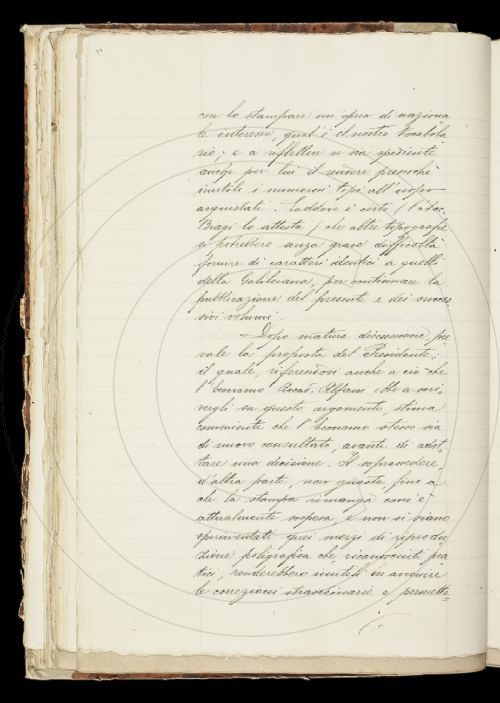 con lo stampare un'opera di naziona
le interesse, qual'è il nostro Vocabola
rio; e a riflettere se sia spediente
anche per lui il rendere pressoché
inutili i numerosi tipi all'uopo
acquistati. Laddove è certo (l'Acc.
Biagi lo attesta) che altre tipografie
si potrebbero senza grave difficoltà
fornire di caratteri identici a quelli
della Galileiana, per continuare la
pubblicazione del presente e dei succes
sivi volumi.
Dopo matura discussione pre
vale la proposta del Presidente;
il quale, riferendosi anche a ciò che
l'Economo Accad. Alfani ebbe a scri-
vergli su questo argomento, stima
conveniente che l'Economo stesso sia
di nuovo consultato, avanti di adot-
tare una decisione. Il soprassedere,
d'altra parte, non guasta, fino a
che la stampa rimanga com'è
attualmente sospesa, e non si siano
sperimentati quei mezzi di riprodu
zione poligrafica che, riconosciuti pra
tici, renderebbero inutili in avvenire
le correzioni straordinarie e permette=